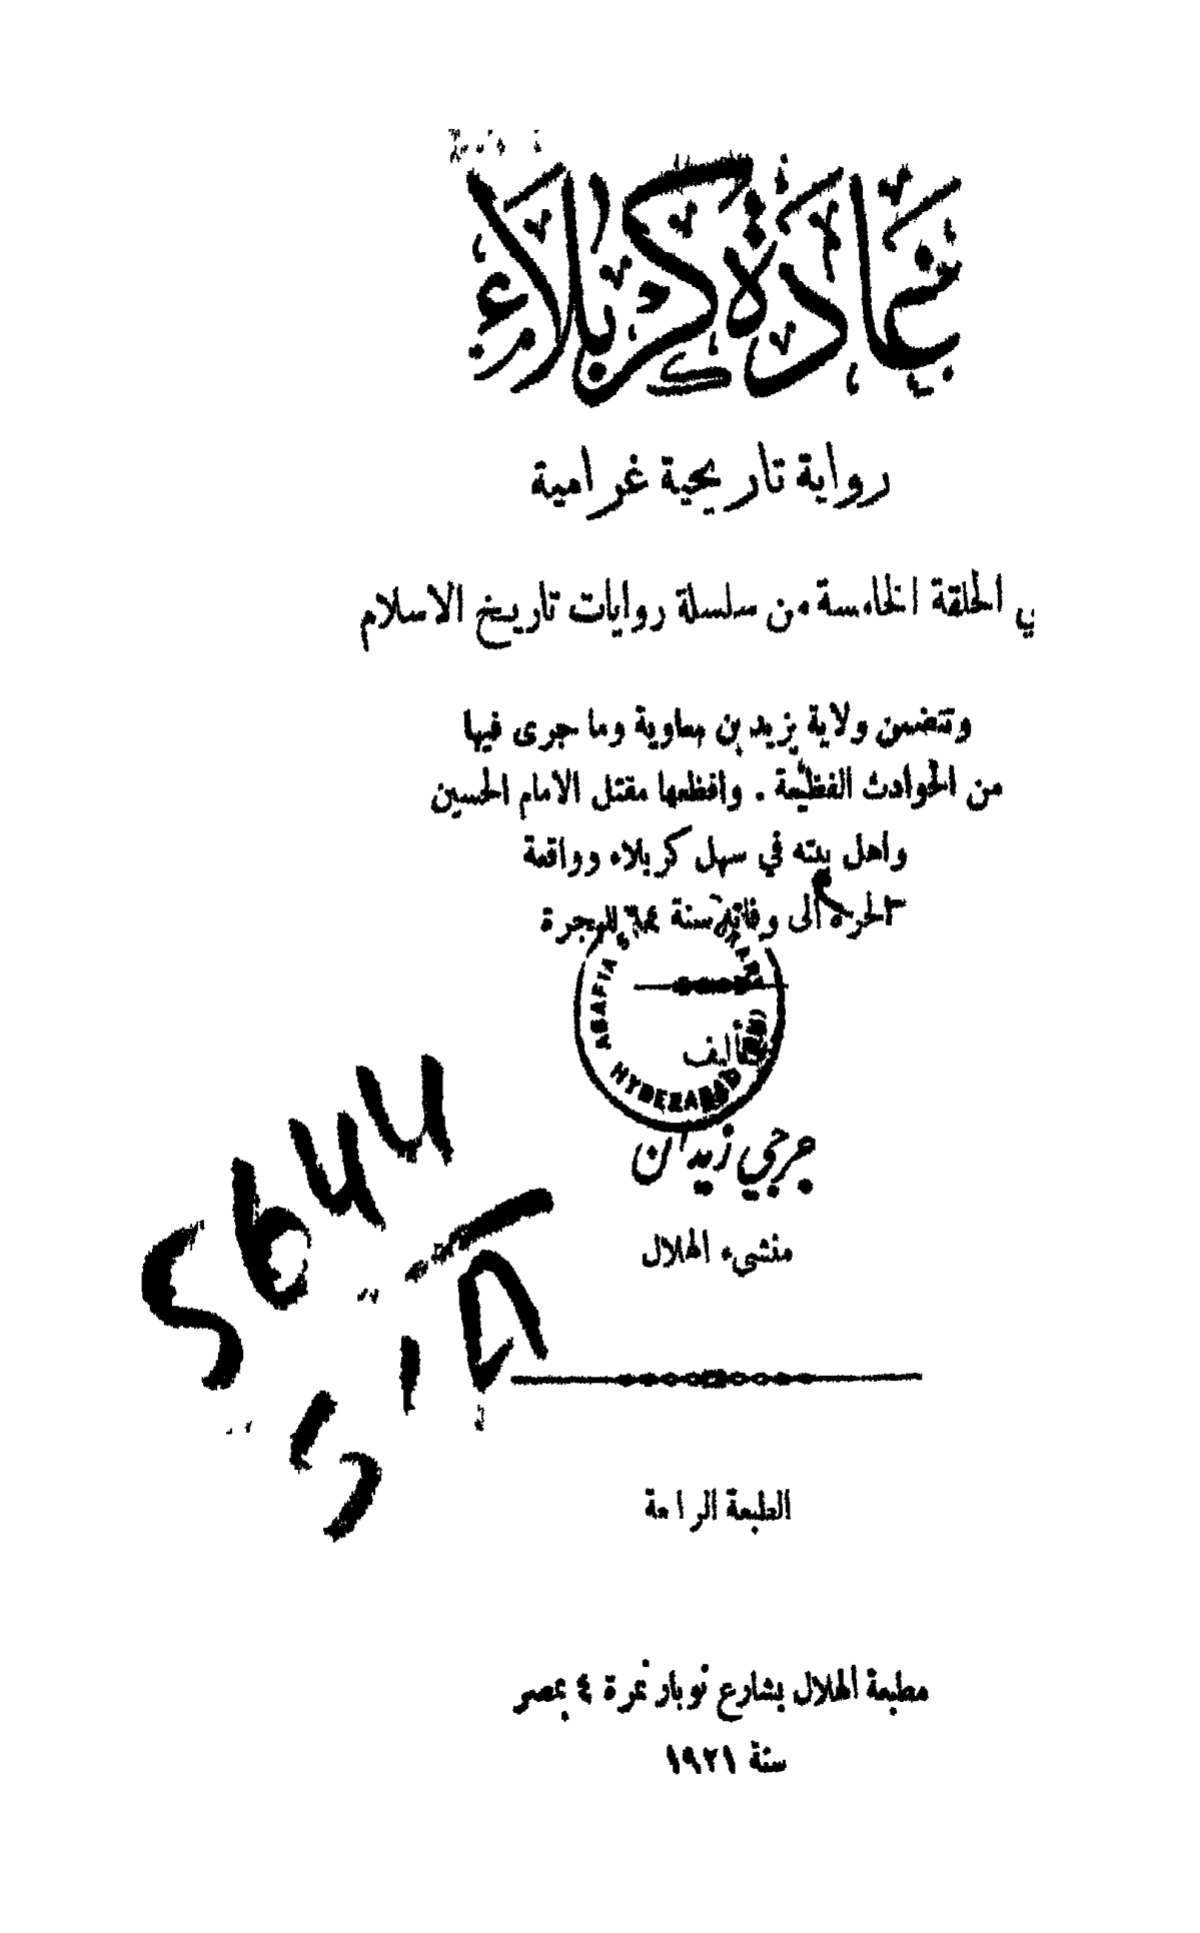 غادة كربلاء
رواية تاريخية غرامية
ي الحلقة الخامسة من سلسلة روايات تاريخ الاسلام
وتتضمن ولاية يزيد بن معاوية وما جرى فيها
من الحوادث الفظيعة . وافظعها مقتل الامام الحسين
واهل بيته في سهل كربلاء وواقعة
الحرة الى وفاته سنة للهجرة
ASAFIA
HYDERABAD
تأليف
جرجي زيدان
منشيء الهلال
5644
الطبعة الرابعة
مطبعة الهلال بشارع نوبار نمرة ٤ بمصر
سنة ١٩٢١